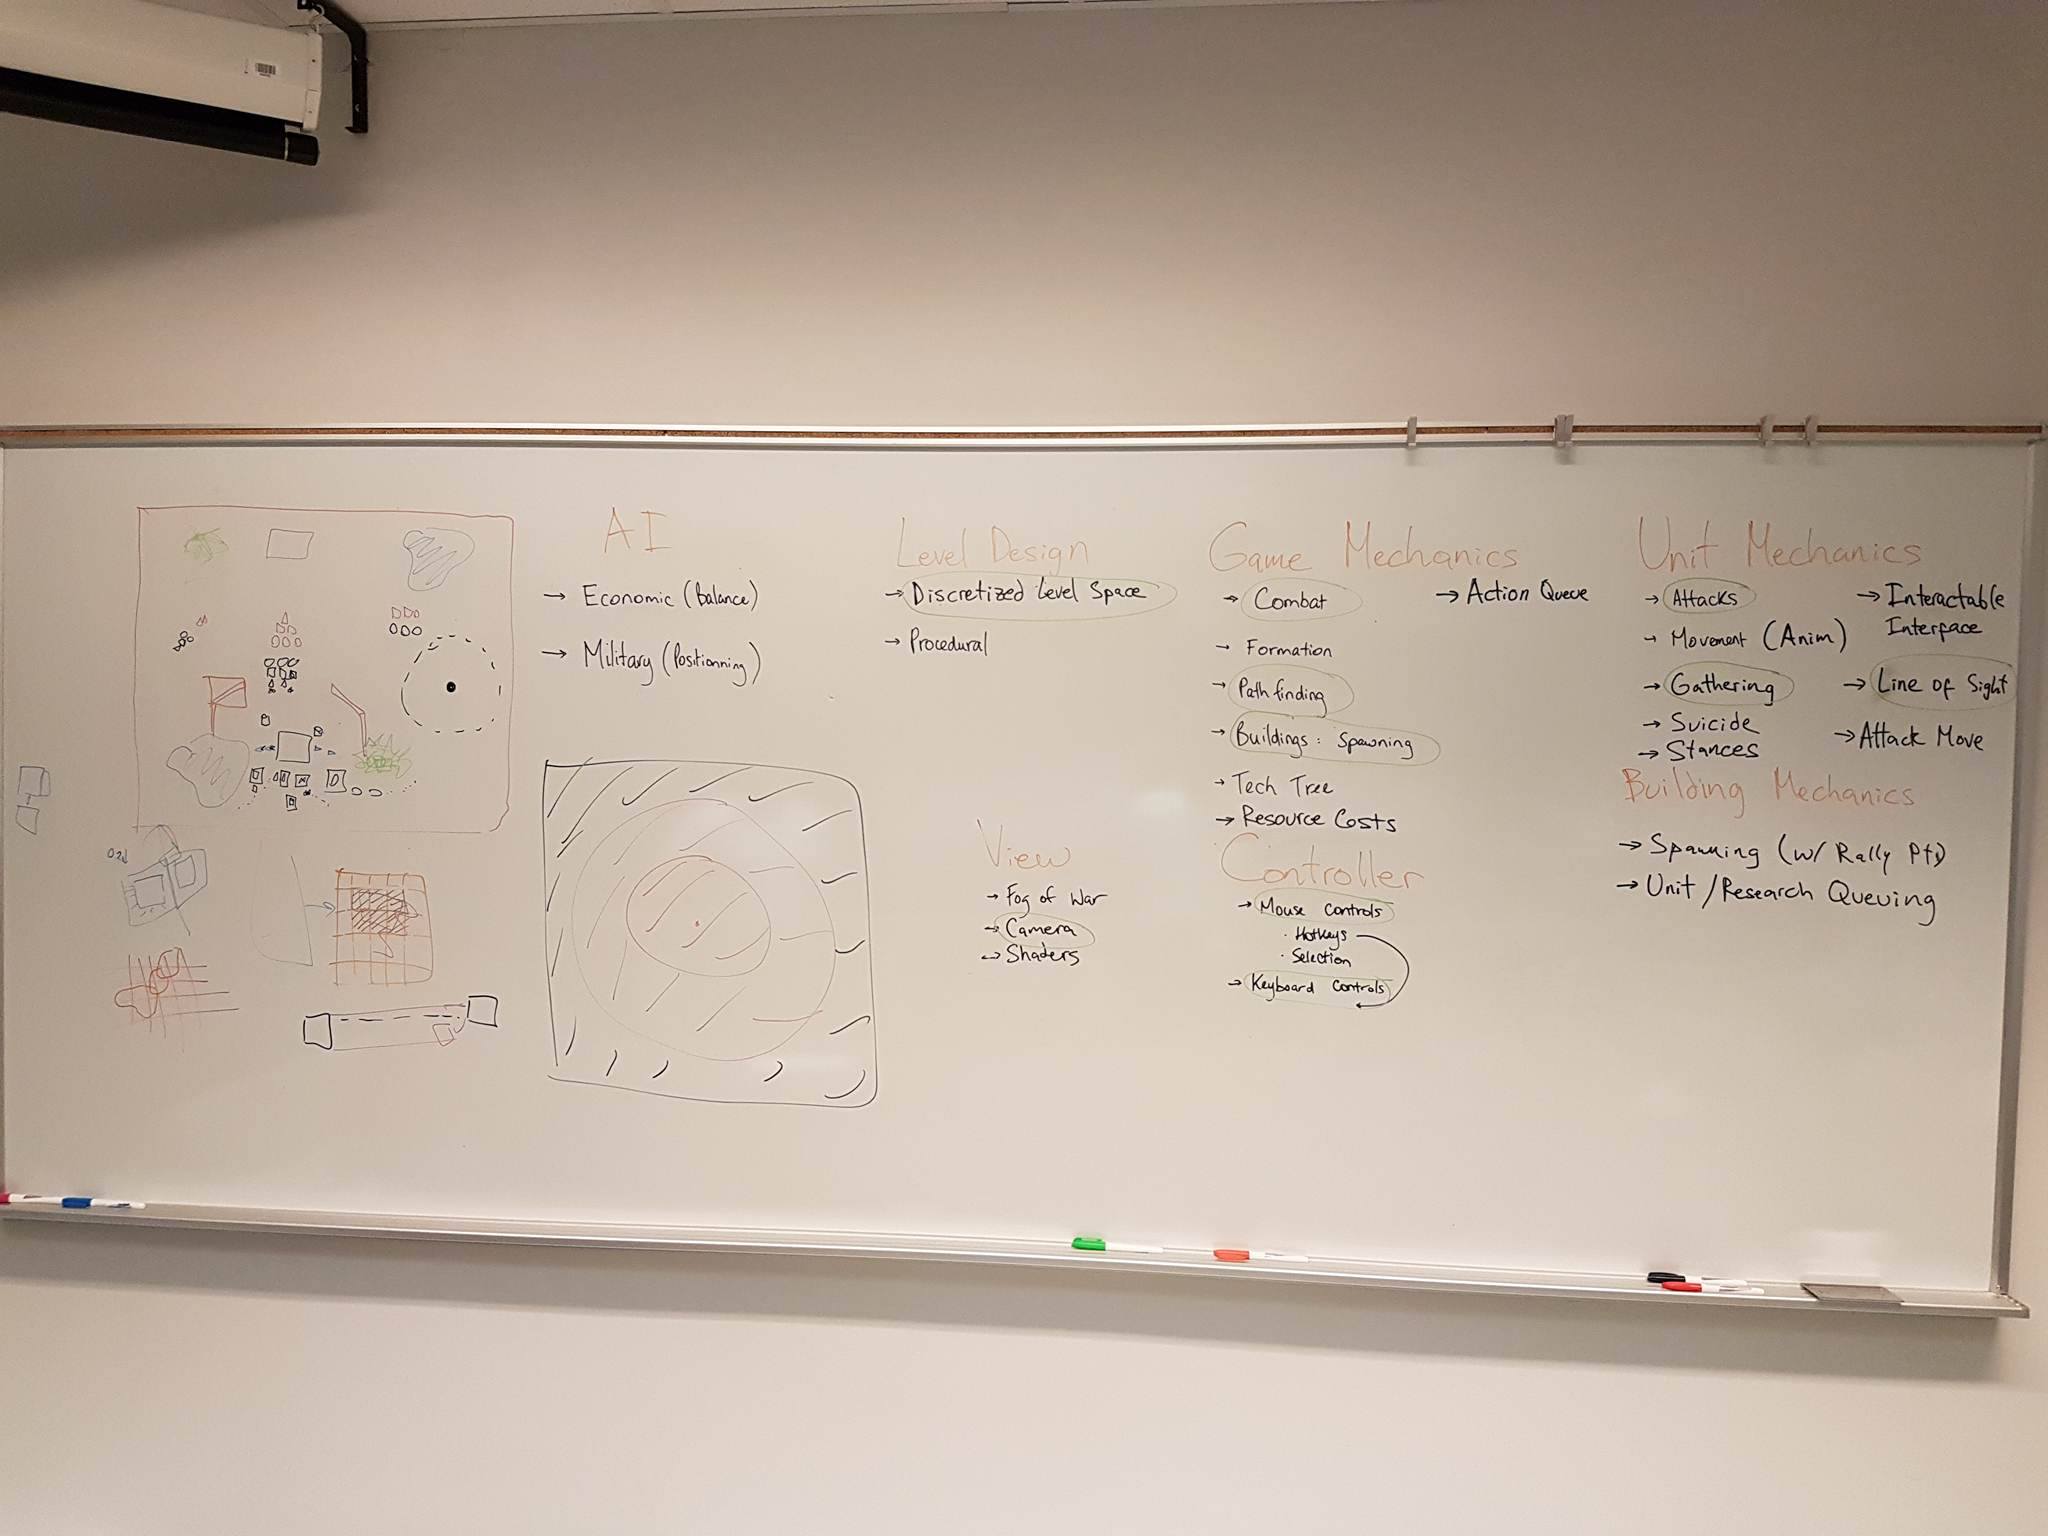 AI
→ Economic (Balance)
→ Military (Positionning)
Level Design
→ Discretized Level Space
→ Procedural
View
→ Fog of War
→ Camera
→ Shaders
Game Mechanics
→ Combat
→ Formation
→ Path finding
→ Buildings: Spawning
→ Tech Tree
→ Resource Costs
→ Action Queue
Controller
→ Mouse Controls
· Hotkeys
· Selection
→ Keyboard Controls
Unit Mechanics
→ Attacks
→ Movement (Anim)
→ Gathering
→ Suicide
→ Stances
→ Interactable
Interface
→ Line of Sight
→ Attack Move
Building Mechanics
→ Spawning (w/ Rally Pts)
→ Unit/Research Queuing